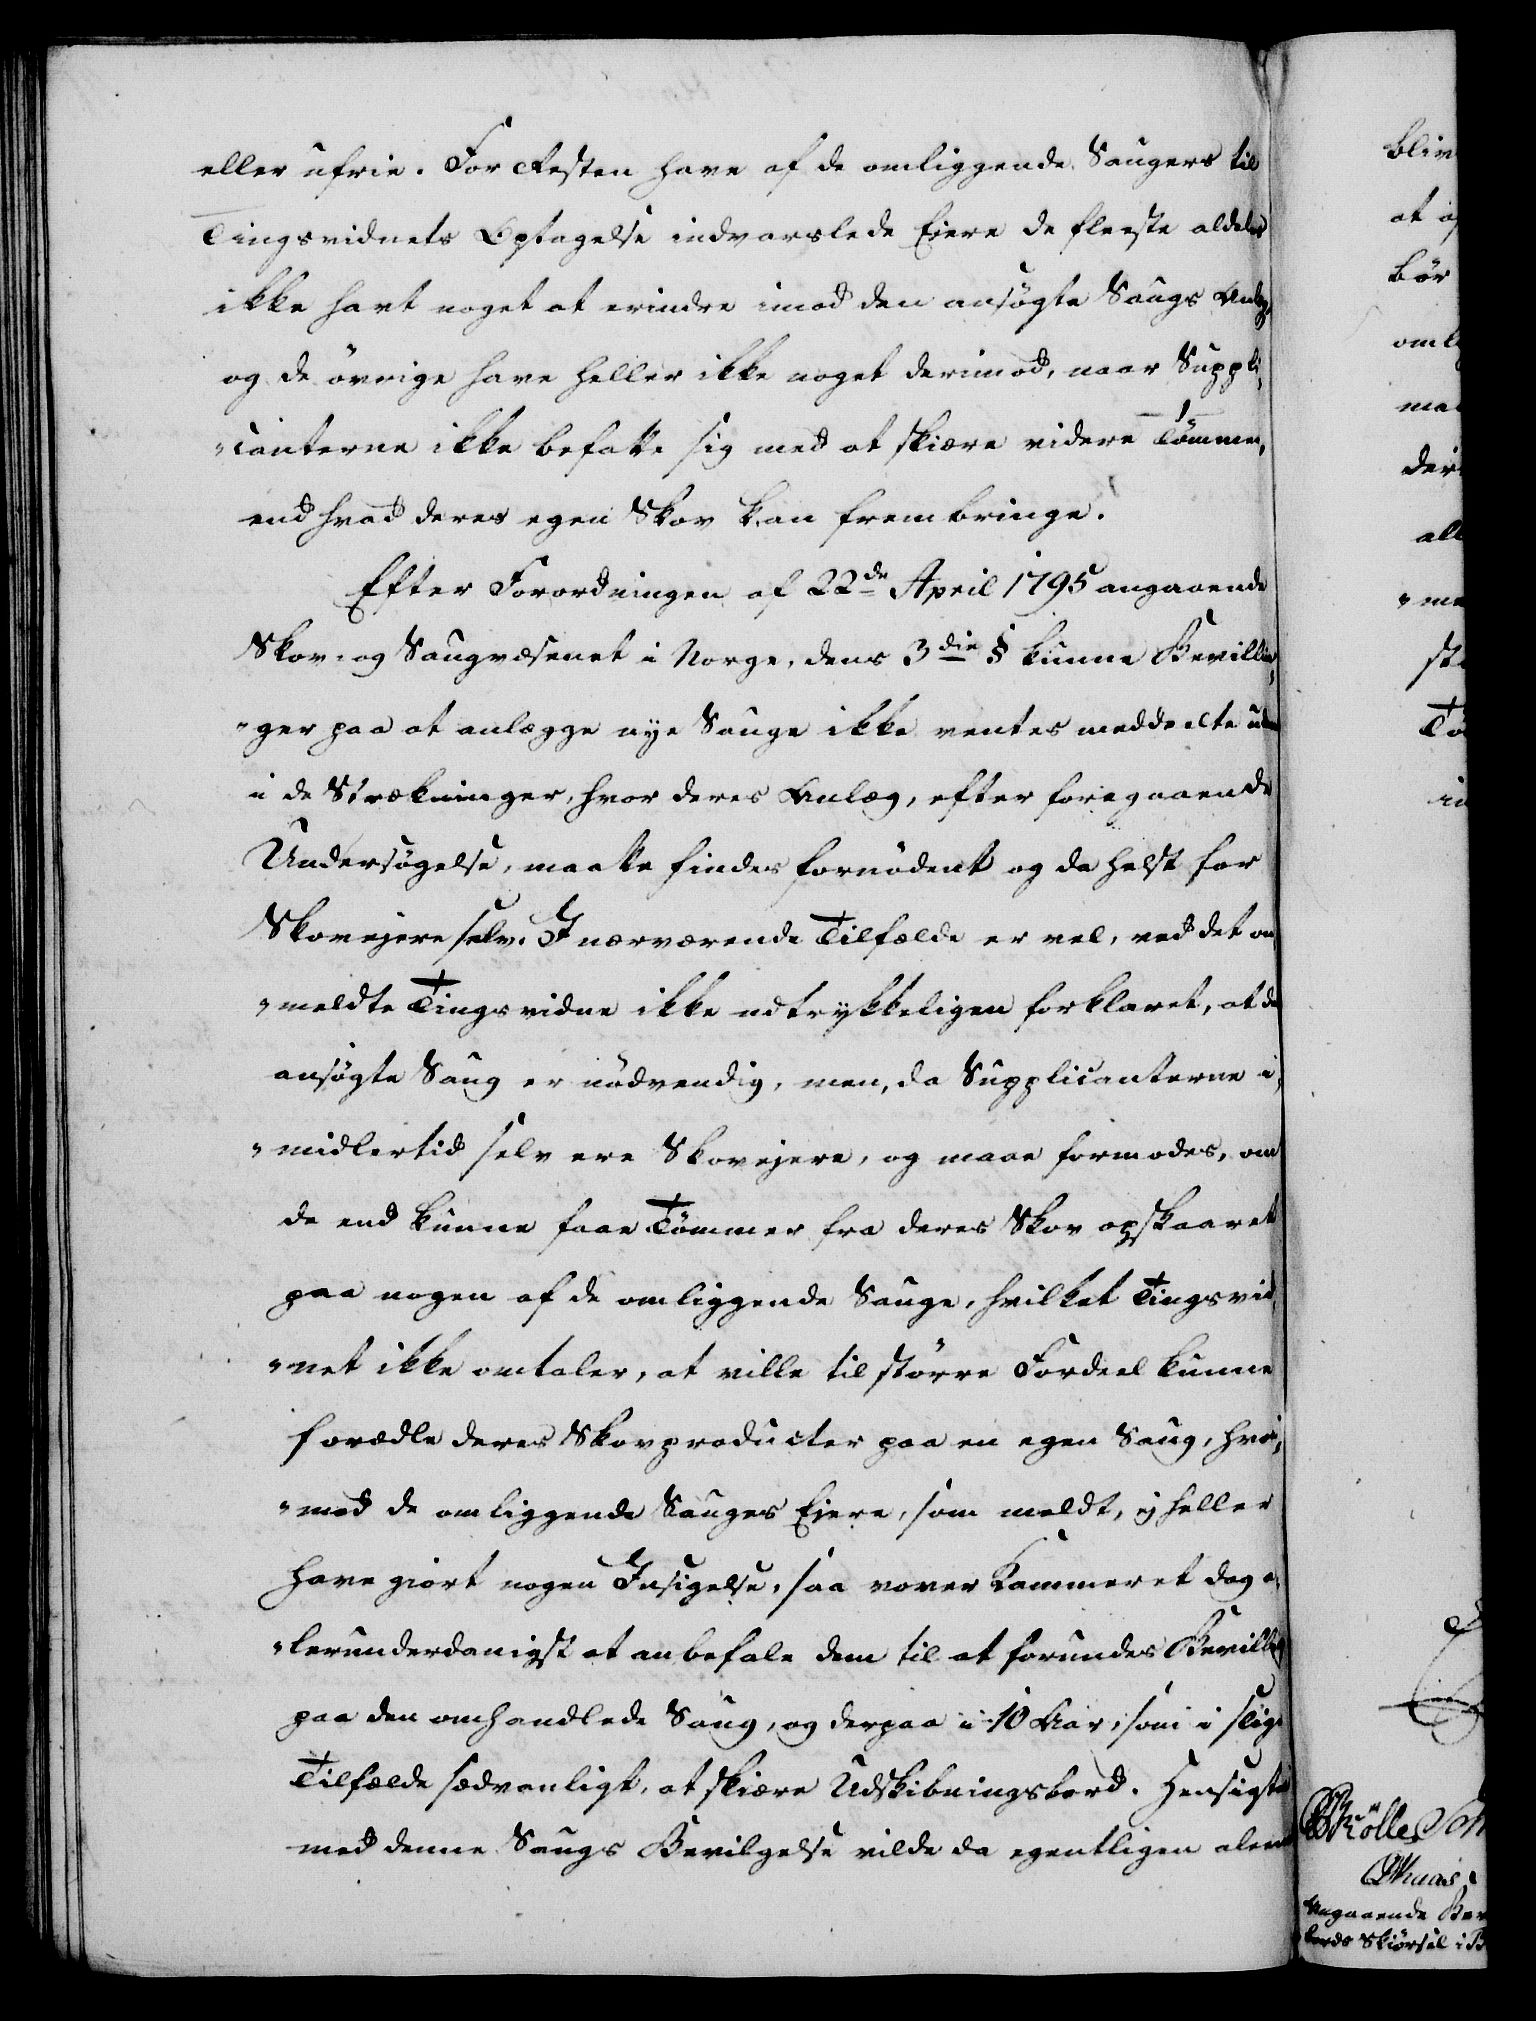 eller ufrie. For Resten have af de omliggende Saugers til
Tingsvidnets Optagelse indvarslede Eiere de fleeste aldeles
ikke havt noget at erindre imod den ansøgte Saugs Anlæg,
og de øvrige have heller ikke noget derimod, naar Suppli-
canterne ikke befatte sig med at skiære videre Tømmer,
end hvad deres egen Skov kan frembringe.
Efter Forordningen af 22de April 1795 angaaende
Skov- og Saugvæsenet i Norge, dens 3die § kunne Bevillin-
ger paa at anlægge nye Sauge ikke ventes meddeelte uden
i de Strækninger, hvor deres Anlæg, efter foregaaende
Undersøgelse, maatte findes fornødent og da helst for
Skovejere selv. I nærværende Tilfælde er vel, ved det an-
meldte Tingsvidne ikke udtrykkeligen forklaret, at den
ansøgte Saug er nødvendig, men, da Supplicanterne i-
midlertid selv ere Skovejere, og maae formodes, om
de end kunne faae Tømmer fra deres Skov opskaaret
paa nogen af de omliggende Sauge, hvilket Tingsvid-
net ikke omtaler, at ville til større Fordeel kunne
forædle deres Skovproducter paa en egen Saug, hvor-
mod de omliggende Sauges Eiere, som meldt, ej heller
have giort nogen Indsigelse, saa vover Kammeret dog a-
lerunderdanigst at anbefale dem til at forundes Bevilling
paa den omhandlede Saug, og derpaa i 10 Aar, som i slige
Tilfælde sædvanligt, at skiære Udskibningsbord. Hensigten
med denne Saugs Bevilgelse vilde da egentligen alene
bliv
at
bør
der
Møller
Angaaende